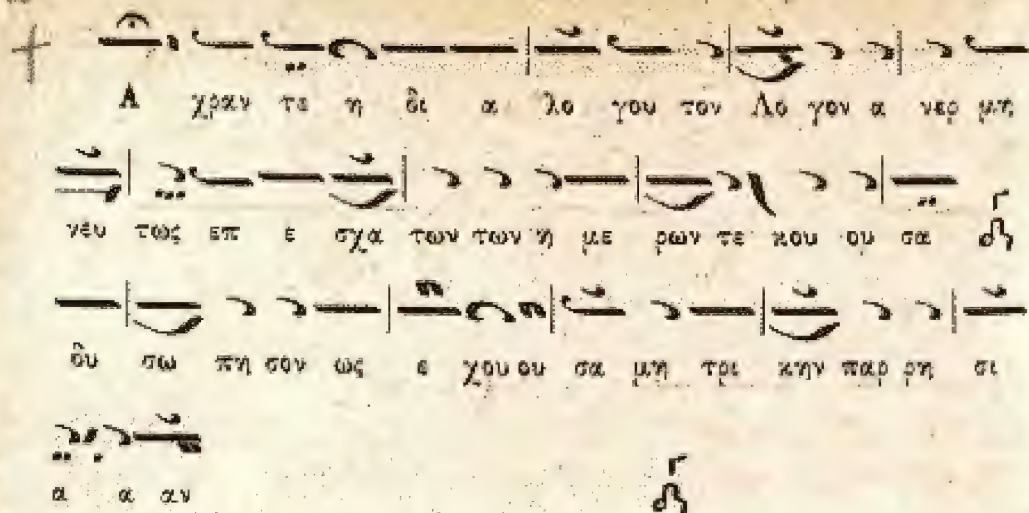 Α χραν τε η δι α λο γου τον Λο γον α νερ μη
νέυ τως επ ε σχα των των η με ρων τε κου ου σα
δυ σω πη σον ως ε χου ου σα μη τρι κην παρ ρη σι
α α αν